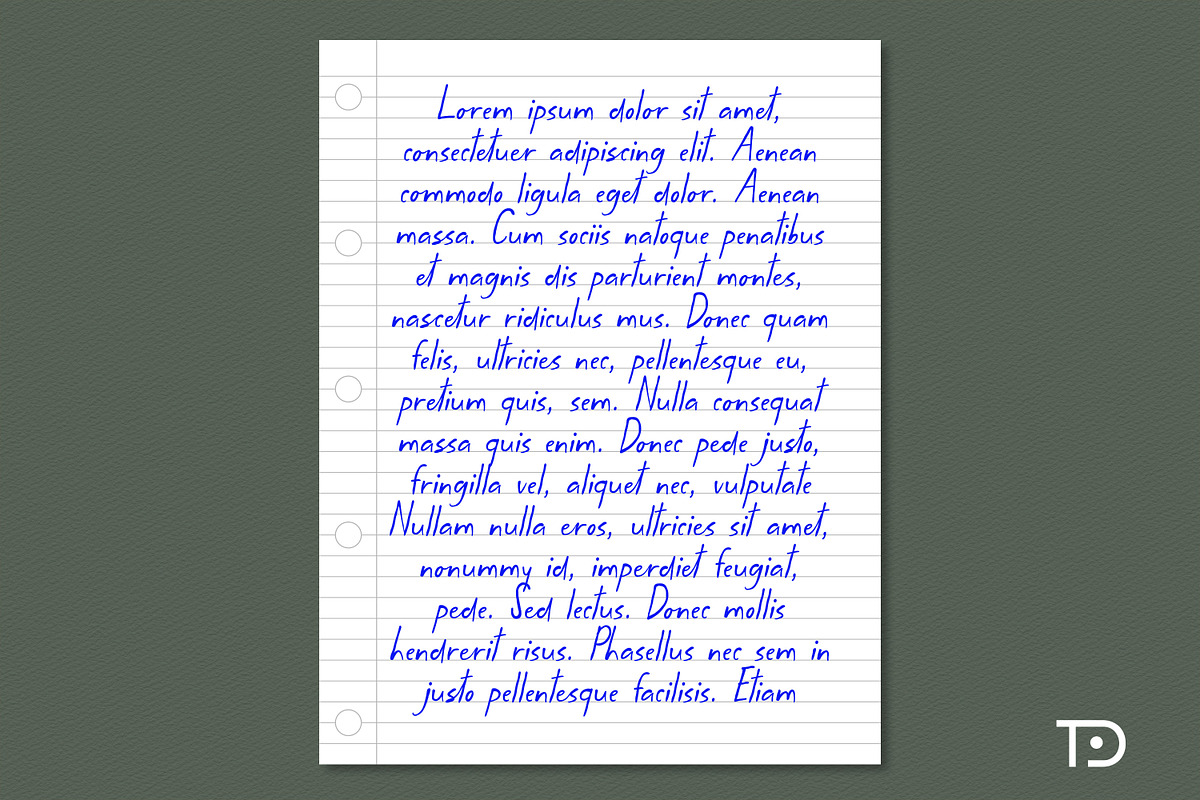 Lorem ipsum dolor sit amet,
consectetuer adipiscing elit. Aenean
commodo ligula eget dolor. Aenean
massa. Cum sociis natoque penatibus
et magnis dis parturient montes,
nascetur ridiculus mus. Donec quam
felis, ultricies nec, pellentesque eu,
pretium quis, sem. Nulla consequat
massa quis enim. Donec pede justo,
fringilla vel, aliquet nec, vulputate
Nullam nulla eros, ultricies sit amet,
nonummy id, imperdiet feugiat,
pede. Sed lectus. Donec mollis
hendrerit risus. Phasellus nec sem in
justo pellentesque facilisis. Etiam
TD